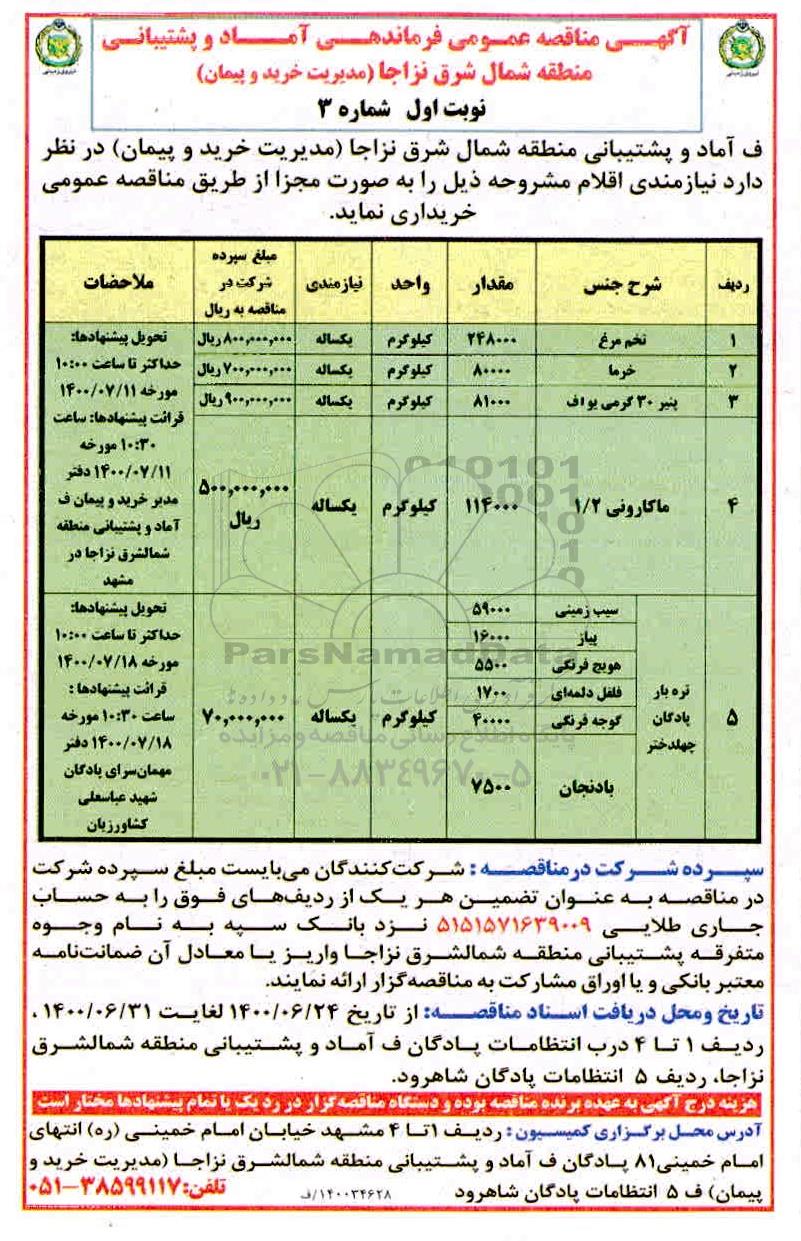 آگهی مناقصه عمومی فرماندهی آماد و پشتیبانی
منطقه شمال شرق نزاجا (مدیریت خرید و پیمان)
نوبت اول شماره ۳
ف آماد و پشتیبانی منطقه شمال شرق نزاجا (مدیریت خرید و پیمان) در نظر
دارد نیازمندی اقلام مشروحه ذیل را به صورت مجزا از طریق مناقصه عمومی
خریداری نماید.
ردیف شرح جنس مقدار واحد نیازمندی مبلغ سپرده شرکت در مناقصه به ریال ملاحضات
۱ تخم مرغ ۲۴۸۰۰۰ کیلوگرم یکساله ۸۰۰,۰۰۰,۰۰۰ ریال
۲ خرما ۸۰۰۰۰ کیلوگرم یکساله ۷۰۰,۰۰۰,۰۰۰ ریال
۳ پنیر ۳۰ گرمی یو اف ۸۱۰۰۰ کیلوگرم یکساله ۹۰۰,۰۰۰,۰۰۰ ریال
۴ ماکارونی ۱/۲ ۱۱۴۰۰۰ کیلوگرم یکساله ۵۰۰,۰۰۰,۰۰۰
ریال
تحویل پیشنهادها:
حداکثر تا ساعت ۱۰:۰۰
مورخه ۱۴۰۰/۰۷/۱۱
قرائت پیشنهادها: ساعت
۱۰:۳۰ مورخه
۱۴۰۰/۰۷/۱۱ دفتر
مدیر خرید و پیمان ف
آماد و پشتیبانی منطقه
شمالشرق نزاجا در
مشهد
۵ تره بار
پادگان
چهلدختر
سیب زمینی ۵۹۰۰۰
پیاز ۱۶۰۰۰
هویج فرنگی ۵۵۰۰
فلفل دلمه‌ای ۱۷۰۰
گوجه فرنگی ۴۰۰۰۰
بادنجان ۷۵۰۰
کیلوگرم یکساله ۷۰,۰۰۰,۰۰۰
تحویل پیشنهادها:
حداکثر تا ساعت ۱۰:۰۰
مورخه ۱۴۰۰/۰۷/۱۸
قرائت پیشنهادها :
ساعت ۱۰:۳۰ مورخه
۱۴۰۰/۰۷/۱۸ دفتر
مهمان‌سرای پادگان
شهید عباسعلی
کشاورزیان
ParsNamadData
پایگاه اطلاع رسانی مناقصه و مزایده
۰۲۱-۸۸۳۴۹۶۷۰-۵
سپرده شرکت در مناقصه : شرکت‌کنندگان می‌بایست مبلغ سپرده شرکت
در مناقصه به عنوان تضمین هر یک از ردیف‌های فوق را به حساب
جاری طلایی ۵۱۵۱۵۷۱۶۳۹۰۰۹ نزد بانک سپه به نام وجوه
متفرقه پشتیبانی منطقه شمالشرق نزاجا واریز یا معادل آن ضمانت‌نامه
معتبر بانکی و یا اوراق مشارکت به مناقصه‌گزار ارائه نمایند.
تاریخ و محل دریافت اسناد مناقصه: از تاریخ ۱۴۰۰/۰۶/۲۴ لغایت ۱۴۰۰/۰۶/۳۱ ،
ردیف ۱ تا ۴ درب انتظامات پادگان ف آماد و پشتیبانی منطقه شمالشرق
نزاجا، ردیف ۵ انتظامات پادگان شاهرود.
هزینه درج آگهی به عهده برنده مناقصه بوده و دستگاه مناقصه‌گزار در رد یک یا تمام پیشنهادها مختار است
آدرس محل برگزاری کمیسیون : ردیف ۱ تا ۴ مشهد خیابان امام خمینی (ره) انتهای
امام خمینی ۸۱ پادگان ف آماد و پشتیبانی منطقه شمالشرق نزاجا (مدیریت خرید و
پیمان) ف ۵ انتظامات پادگان شاهرود ۱۴۰۰۳۴۶۲۸/ف تلفن: ۳۸۵۹۹۱۱۷-۰۵۱